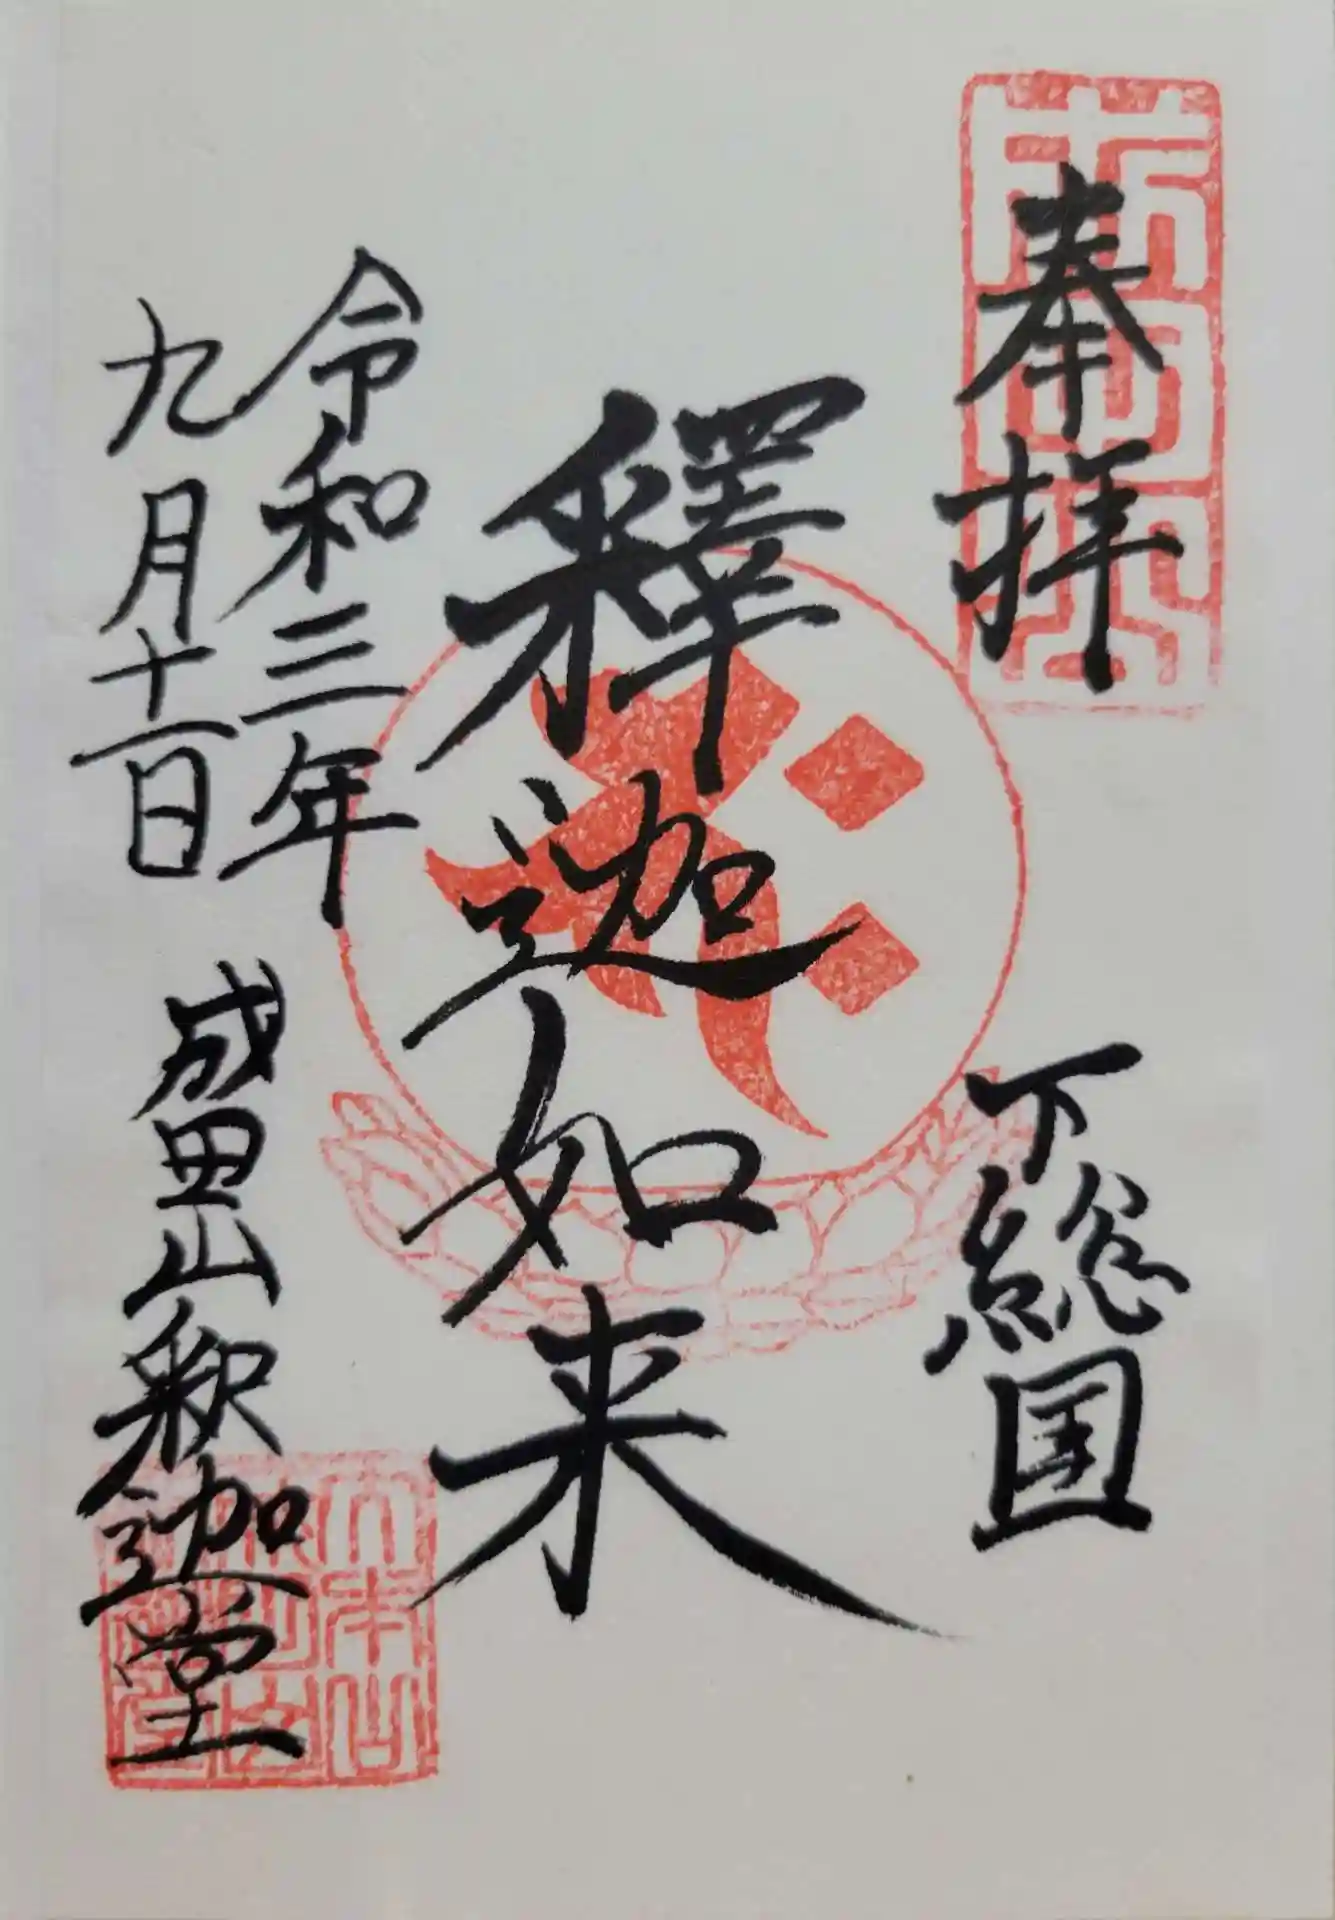 奉拝
下総国
釋迦如来
令和三年
九月十一日
成田山釈迦堂
大本山